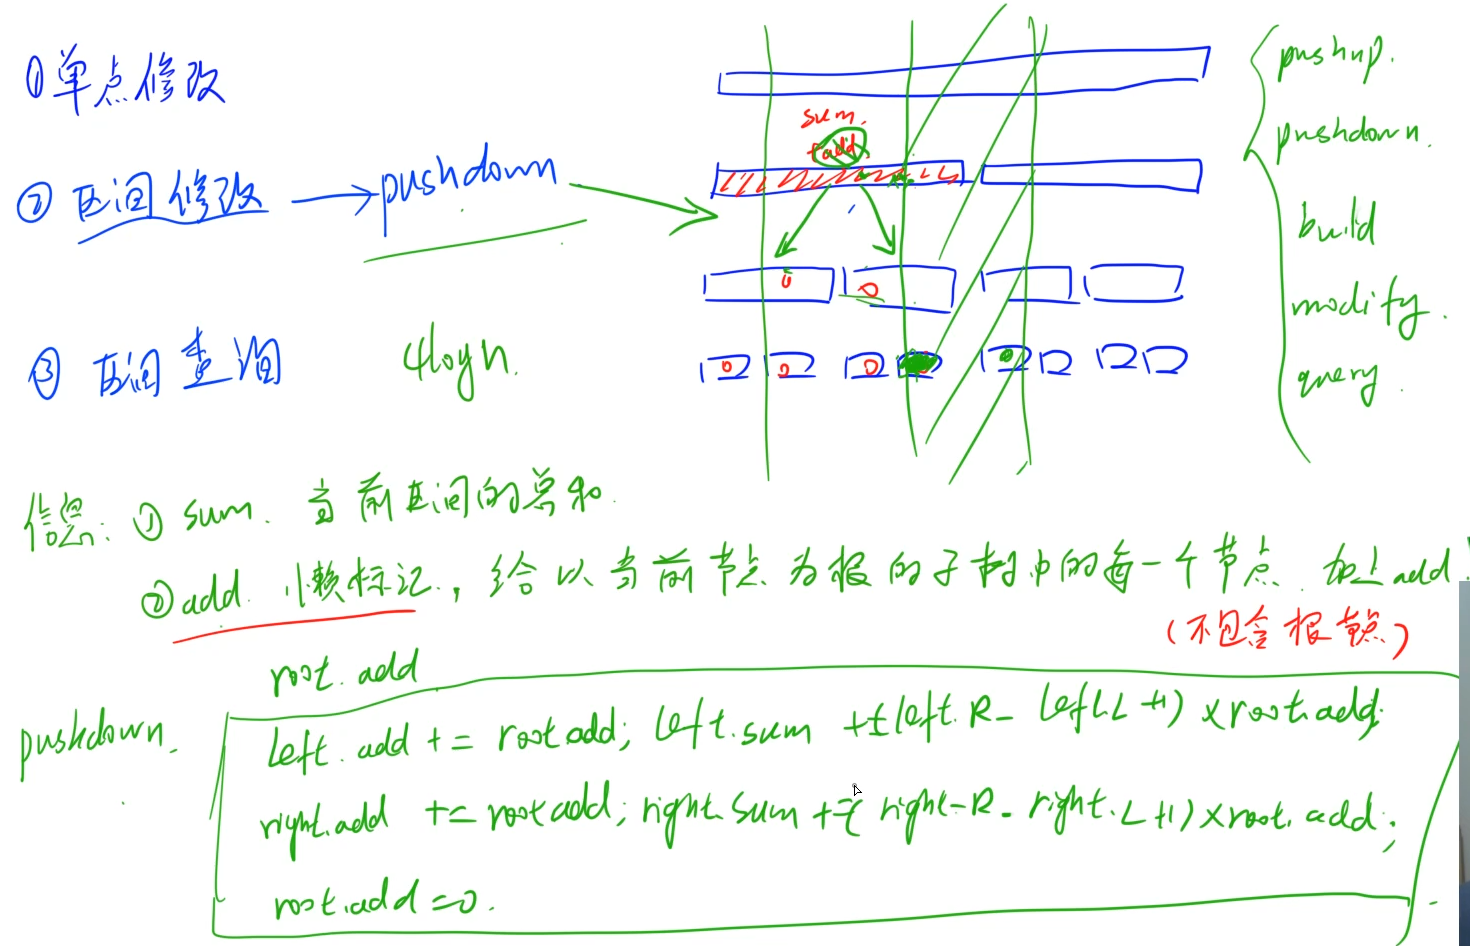 ①单点修改
②区间修改 → pushdown
③区间查询 4logn.
sum.
add
pushup.
pushdown.
build
modify.
query.
信息: ① sum. 当前区间的总和.
②add. 懒标记., 给以当前节点为根的子树中的每一个节点. 加上add
(不包含根节点)
root.add
pushdown.
left.add += root.add; left.sum += (left.R - left.L +1) × root.add;
right.add += root.add; right.sum += ( right.R - right.L +1) × root.add;
root.add = 0.